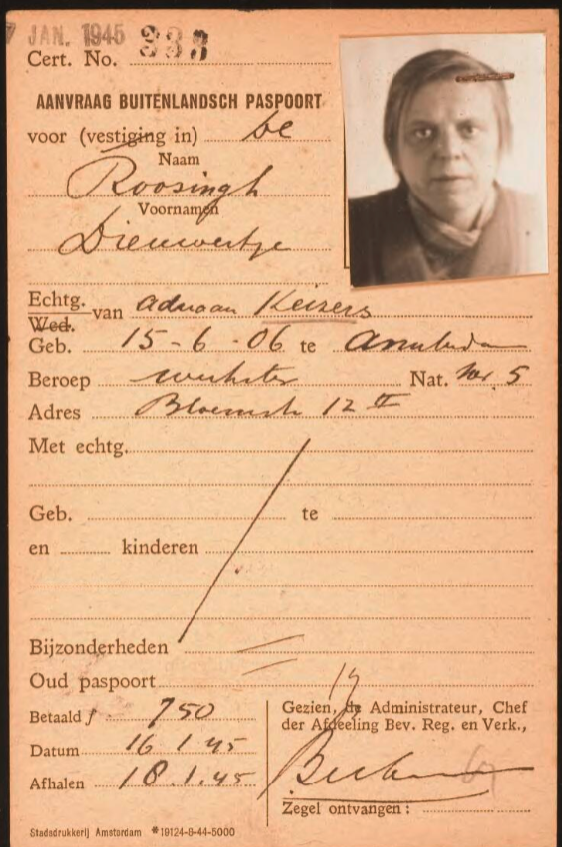 7 JAN. 1945
Cert. No. 333
AANVRAAG BUITENLANDSCH PASPOORT
voor (vestiging in) be
Naam
Roosingh
Voornamen
Dieuwertje
Echtg. van Adriaan Keizers
Wed.
Geb. 15-6-06 te Amsterdam
Beroep werkster Nat. 5
Adres Bloemstr 12 II
Met echtg.
Geb. te
en kinderen
Bijzonderheden
Oud paspoort
Betaald f 750
Datum 16 1.45
Afhalen 18.1.45
Gezien, de Administrateur, Chef
der Afdeeling Bev. Reg. en Verk.,
Zegel ontvangen:
Stadsdrukkerij Amsterdam *19124-8-44-5000